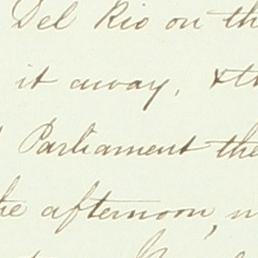 Del Rio on th
it away, & th
Parliament the
he afternoon,